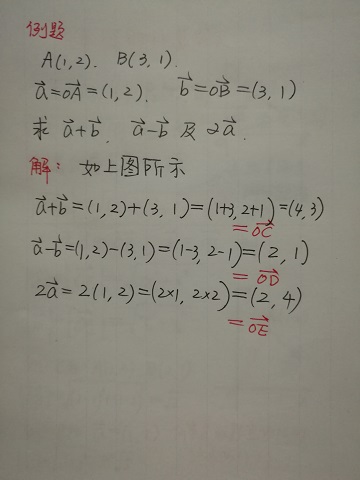 例题
A(1,2). B(3,1).
a⃗=OA⃗=(1,2). b⃗=OB⃗=(3,1)
求 a⃗+b⃗. a⃗-b⃗ 及 2a⃗.
解: 如上图所示
a⃗+b⃗=(1,2)+(3,1)=(1+3,2+1)=(4,3)
=OC⃗
a⃗-b⃗=(1,2)-(3,1)=(1-3,2-1)=(2,1)
=OD⃗
2a⃗=2(1,2)=(2×1,2×2)=(2,4)
=OE⃗